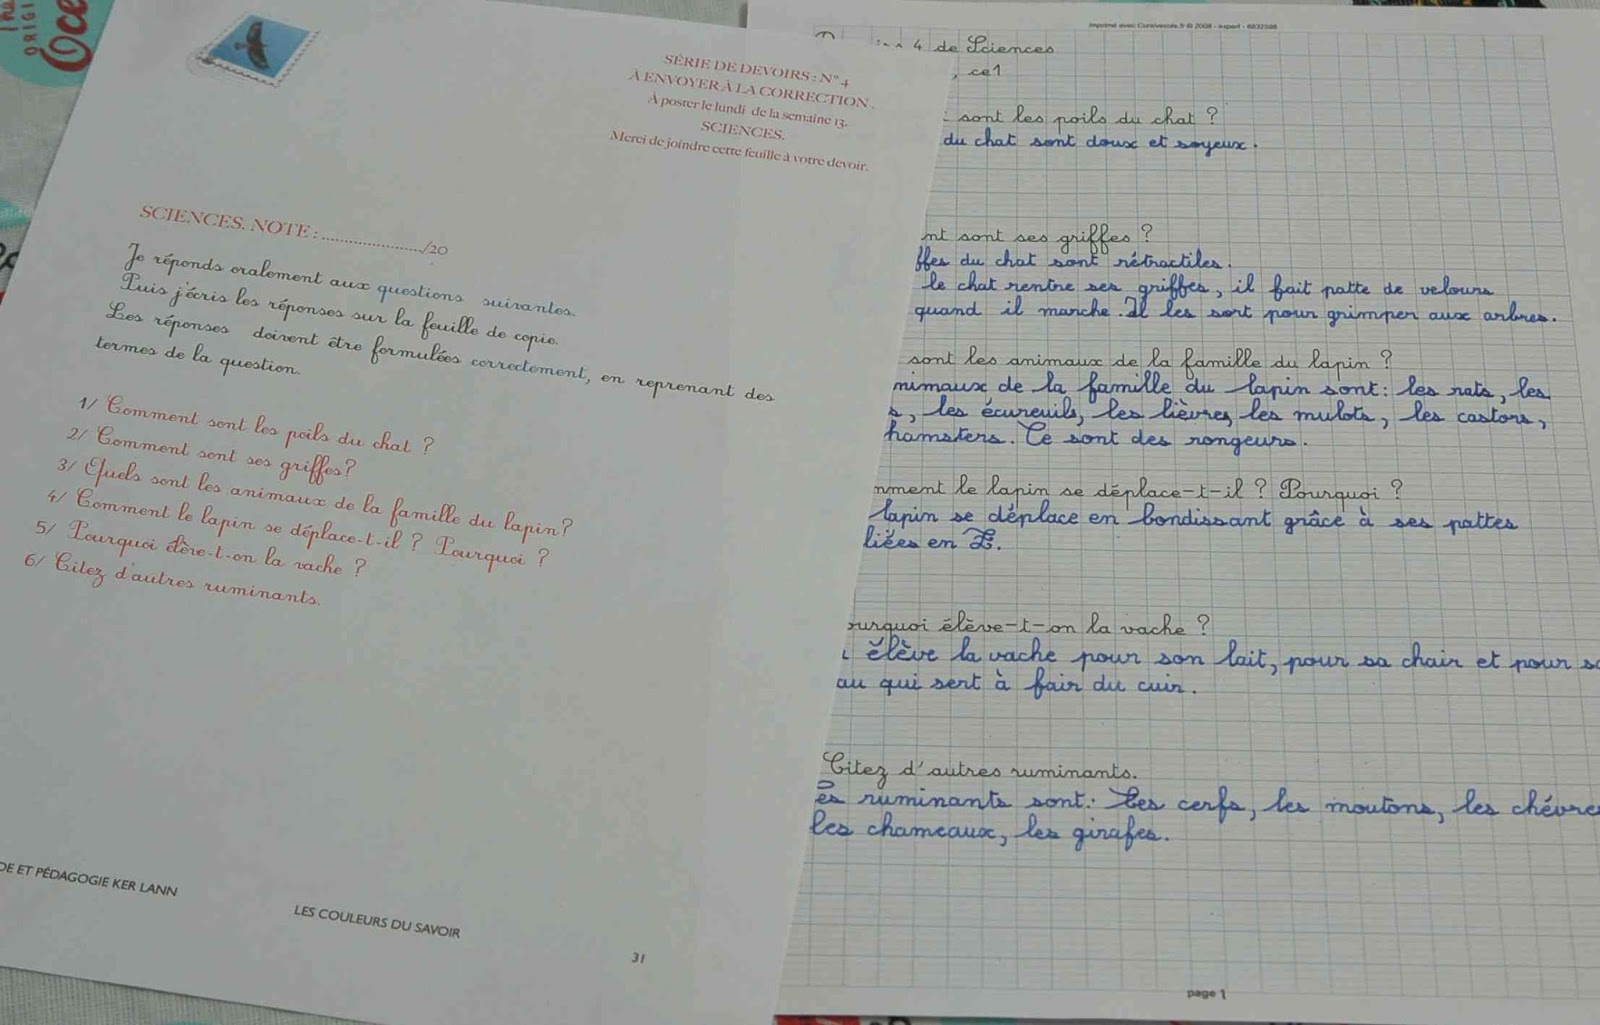 ORIGI
Oce
SÉRIE DE DEVOIRS : N° 4
À ENVOYER À LA CORRECTION.
À poster le lundi de la semaine 13.
SCIENCES.
Merci de joindre cette feuille à votre devoir.
SCIENCES. NOTE : ......................../20
Je réponds oralement aux questions suivantes.
Puis j'écris les réponses sur la feuille de copie.
Les réponses doivent être formulées correctement, en reprenant des
termes de la question.
1/ Comment sont les poils du chat ?
2/ Comment sont ses griffes?
3/ Quels sont les animaux de la famille du lapin?
4/ Comment le lapin se déplace-t-il ? Pourquoi ?
5/ Pourquoi élève-t-on la vache ?
6/ Citez d'autres ruminants.
DE ET PÉDAGOGIE KER LANN
LES COULEURS DU SAVOIR
31
Imprimé avec Cursivecole.fr © 2008 - expert - 6832586
4 de Sciences
, ce1
sont les poils du chat ?
du chat sont doux et soyeux.
nt sont ses griffes ?
ffes du chat sont rétractiles.
le chat rentre ses griffes, il fait patte de velours
quand il marche. Il les sort pour grimper aux arbres.
sont les animaux de la famille du lapin ?
nimaux de la famille du lapin sont: les rats, les
s, les écureuils, les lièvres, les mulots, les castors,
hamsters. Ce sont des rongeurs.
mment le lapin se déplace-t-il ? Pourquoi ?
lapin se déplace en bondissant grâce à ses pattes
liées en Z.
ourquoi élève-t-on la vache ?
élève la vache pour son lait, pour sa chair et pour sa
au qui sert à fair du cuir.
Citez d'autres ruminants.
es ruminants sont: Les cerfs, les moutons, les chévre
les chameaux, les girafes.
page 1